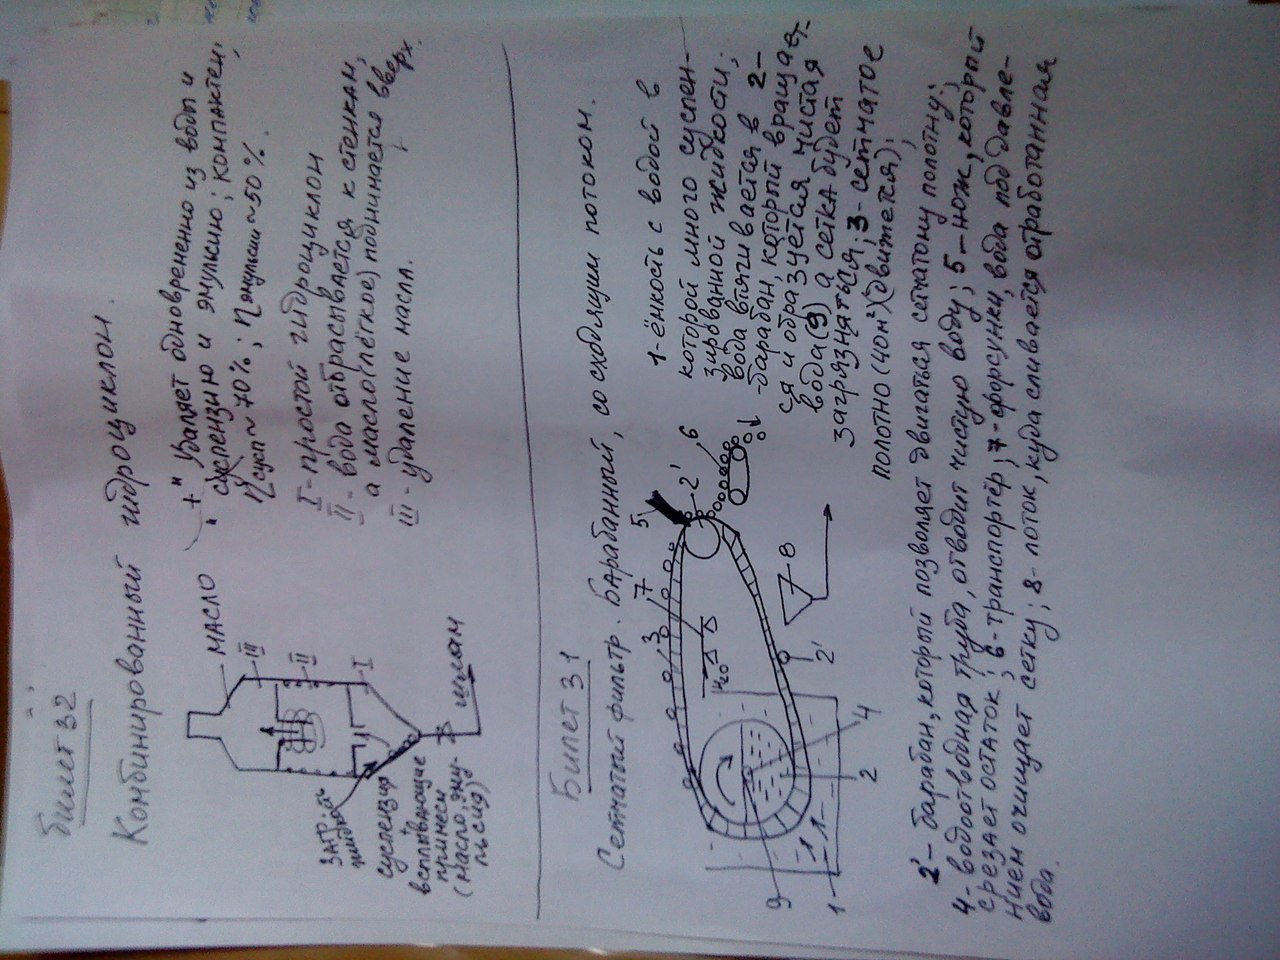 Билет 32
Комбинированный гидроциклон.
МАСЛО
III
II
I
ЗАГР.
жидкость
суспензия
+
всплывающие
примеси
(масло, эму-
льсия)
шлам
"+" Удаляет одновременно из воды и
суспензию и эмульсию; компактен;
ηсусп ~ 70%; ηэмульсии ~ 50%.
I - простой гидроциклон
II - вода отбрасывается к стенкам,
а масло (лёгкое) поднимается вверх.
III - удаление масла.
Билет 31
Сетчатый фильтр. Барабанный, со сходящим потоком.
3
7
5
2'
6
H2O
8
2'
4
2
1
9
1 - ёмкость с водой в
которой много суспен-
зированной жидкости;
вода втягивается в 2 -
- барабан, который вращает-
ся и образуется чистая
вода (9) а сетка будет
загрязняться; 3 - сетчатое
полотно (40м²) (движется);
2' - барабан, который позволяет двигаться сетчатому полотну;
4 - водоотводная труба, отводит чистую воду; 5 - нож, который
срезает остаток; 6 - транспортёр; 7 - форсунки, вода под давле-
нием очищает сетку; 8 - лоток, куда сливается отработанная
вода.